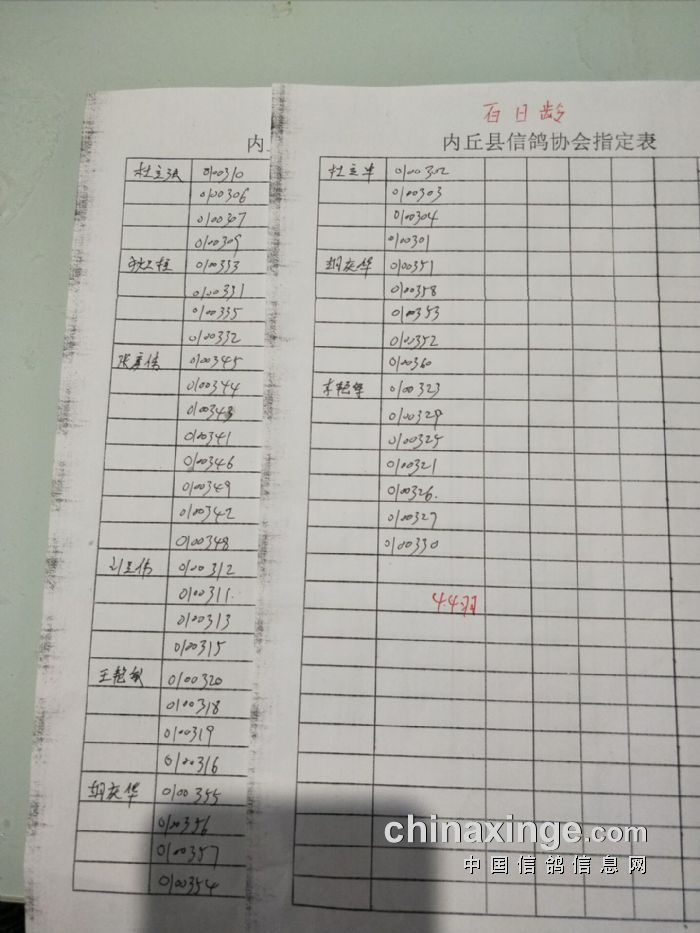 百日龄
内
杜立 0100310
0100306
0100307
0100309
0100333
0100331
0100335
0100332
张彦伟 0100345
0100344
0100343
0100341
0100346
0100349
0100342
0100348
刘立伟 0100312
0100311.
0100313
0100315
王艳敏 0100320
0100318
0100319
0100316
胡庆华 0100355
0100356
0100357
0100354
内丘县信鸽协会指定表
杜立 0100302
0100303
0100304
0100301
胡庆华 0100351
0100358
0100353
0100352
0100360
艳华 0100323
0100329
0100325
0100321
0100326.
0100327
0100330
44羽
chinaxinge.com
中国信鸽信息网